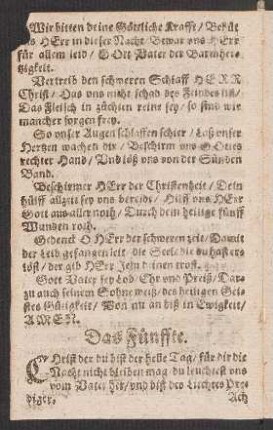 Wir bitten deine Göttliche Krafft / Behüt
uns HErr in dieser Nacht / Bewar uns HErr
für allem leid / GOtt Vater der Barmher-
tzigkeit.
Vertreib den schweren Schlaff HERR
Christ / Das uns nicht schad des Feindes list /
Das Fleisch in züchten reine sey / so sind wir
mancher sorgen frey.
So unser Augen schlaffen schier / Laß unser
Hertzen wachen dir / Beschirm uns GOttes
rechter Hand / Und löß uns von der Sünden
Band.
Beschirmer HErr der Christenheit / Dein
hülff allzeit sey uns bereit / Hilff uns HErr
Gott aus aller noth / Durch dein heilige fünff
Wunden roth.
Gedenck O HErr der schweren zeit / Damit
der Leib gefangen leit / die Seele die du hast er-
löst / der gib HErr Jesu deinen trost.
Gott Vater sey Lob / Ehr und Preiß / Dar-
zu auch seinem Sohne weiß / des heiligen Gei-
stes Gütigkeit / Von nu an biß in Ewigkeit /
AMEN.
Das Fünffte.
CHrist der du bist der helle Tag / für dir die
Nacht nicht bleiben mag / du leuchtest uns
vom Vater her / und bist des Liechtes Pre-
diger. Ach